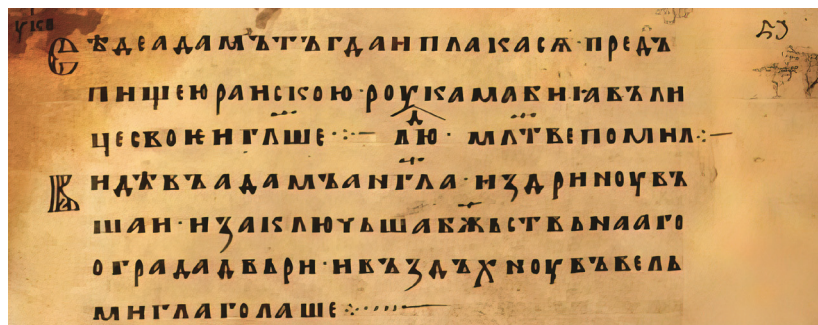 Сѣде адамъ тъгда и плакася · предъ
пищею раискою · роукама биꙗ въ ли
це свое и гл҃аше ·:— лю · мл҃тве помил ·:—
Видѣвъ адамъ анг҃ла · и ꙁдриноувъ
ша и · и ꙁаключьша бж҃ьствьнааго
ограда двьри · и въꙁдъхноувъ вель
ми глаголаше ·:····—